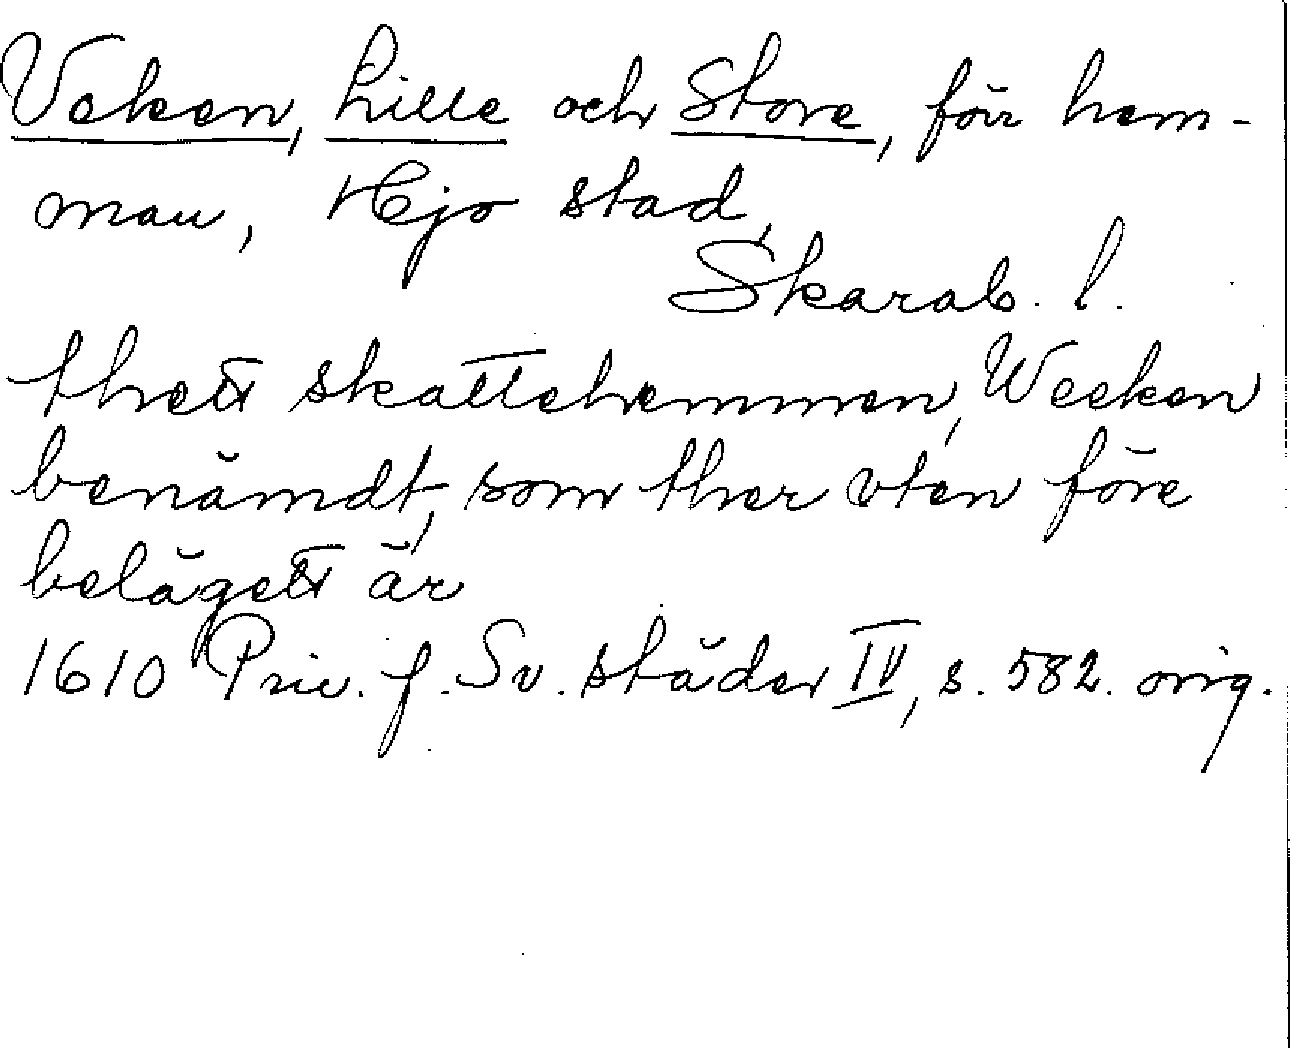 Veken, Lille och Store, förr hem-
man, Hjo stad,
Skarab. l.
thett skattehemmen, Weeken
benämdt, som ther vten före
belägett är
1610 Priv. f. Sv. städer IV, s. 582. orig.